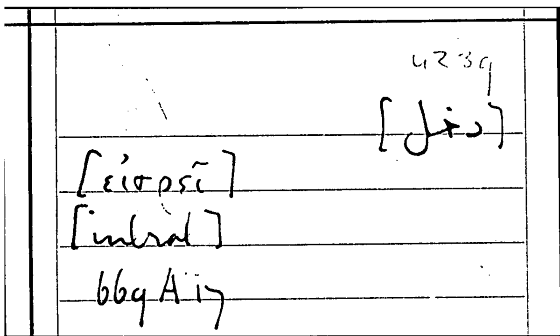 4239
[دخل]
[εἰσρεῖ]
[intrat]
669 A 17